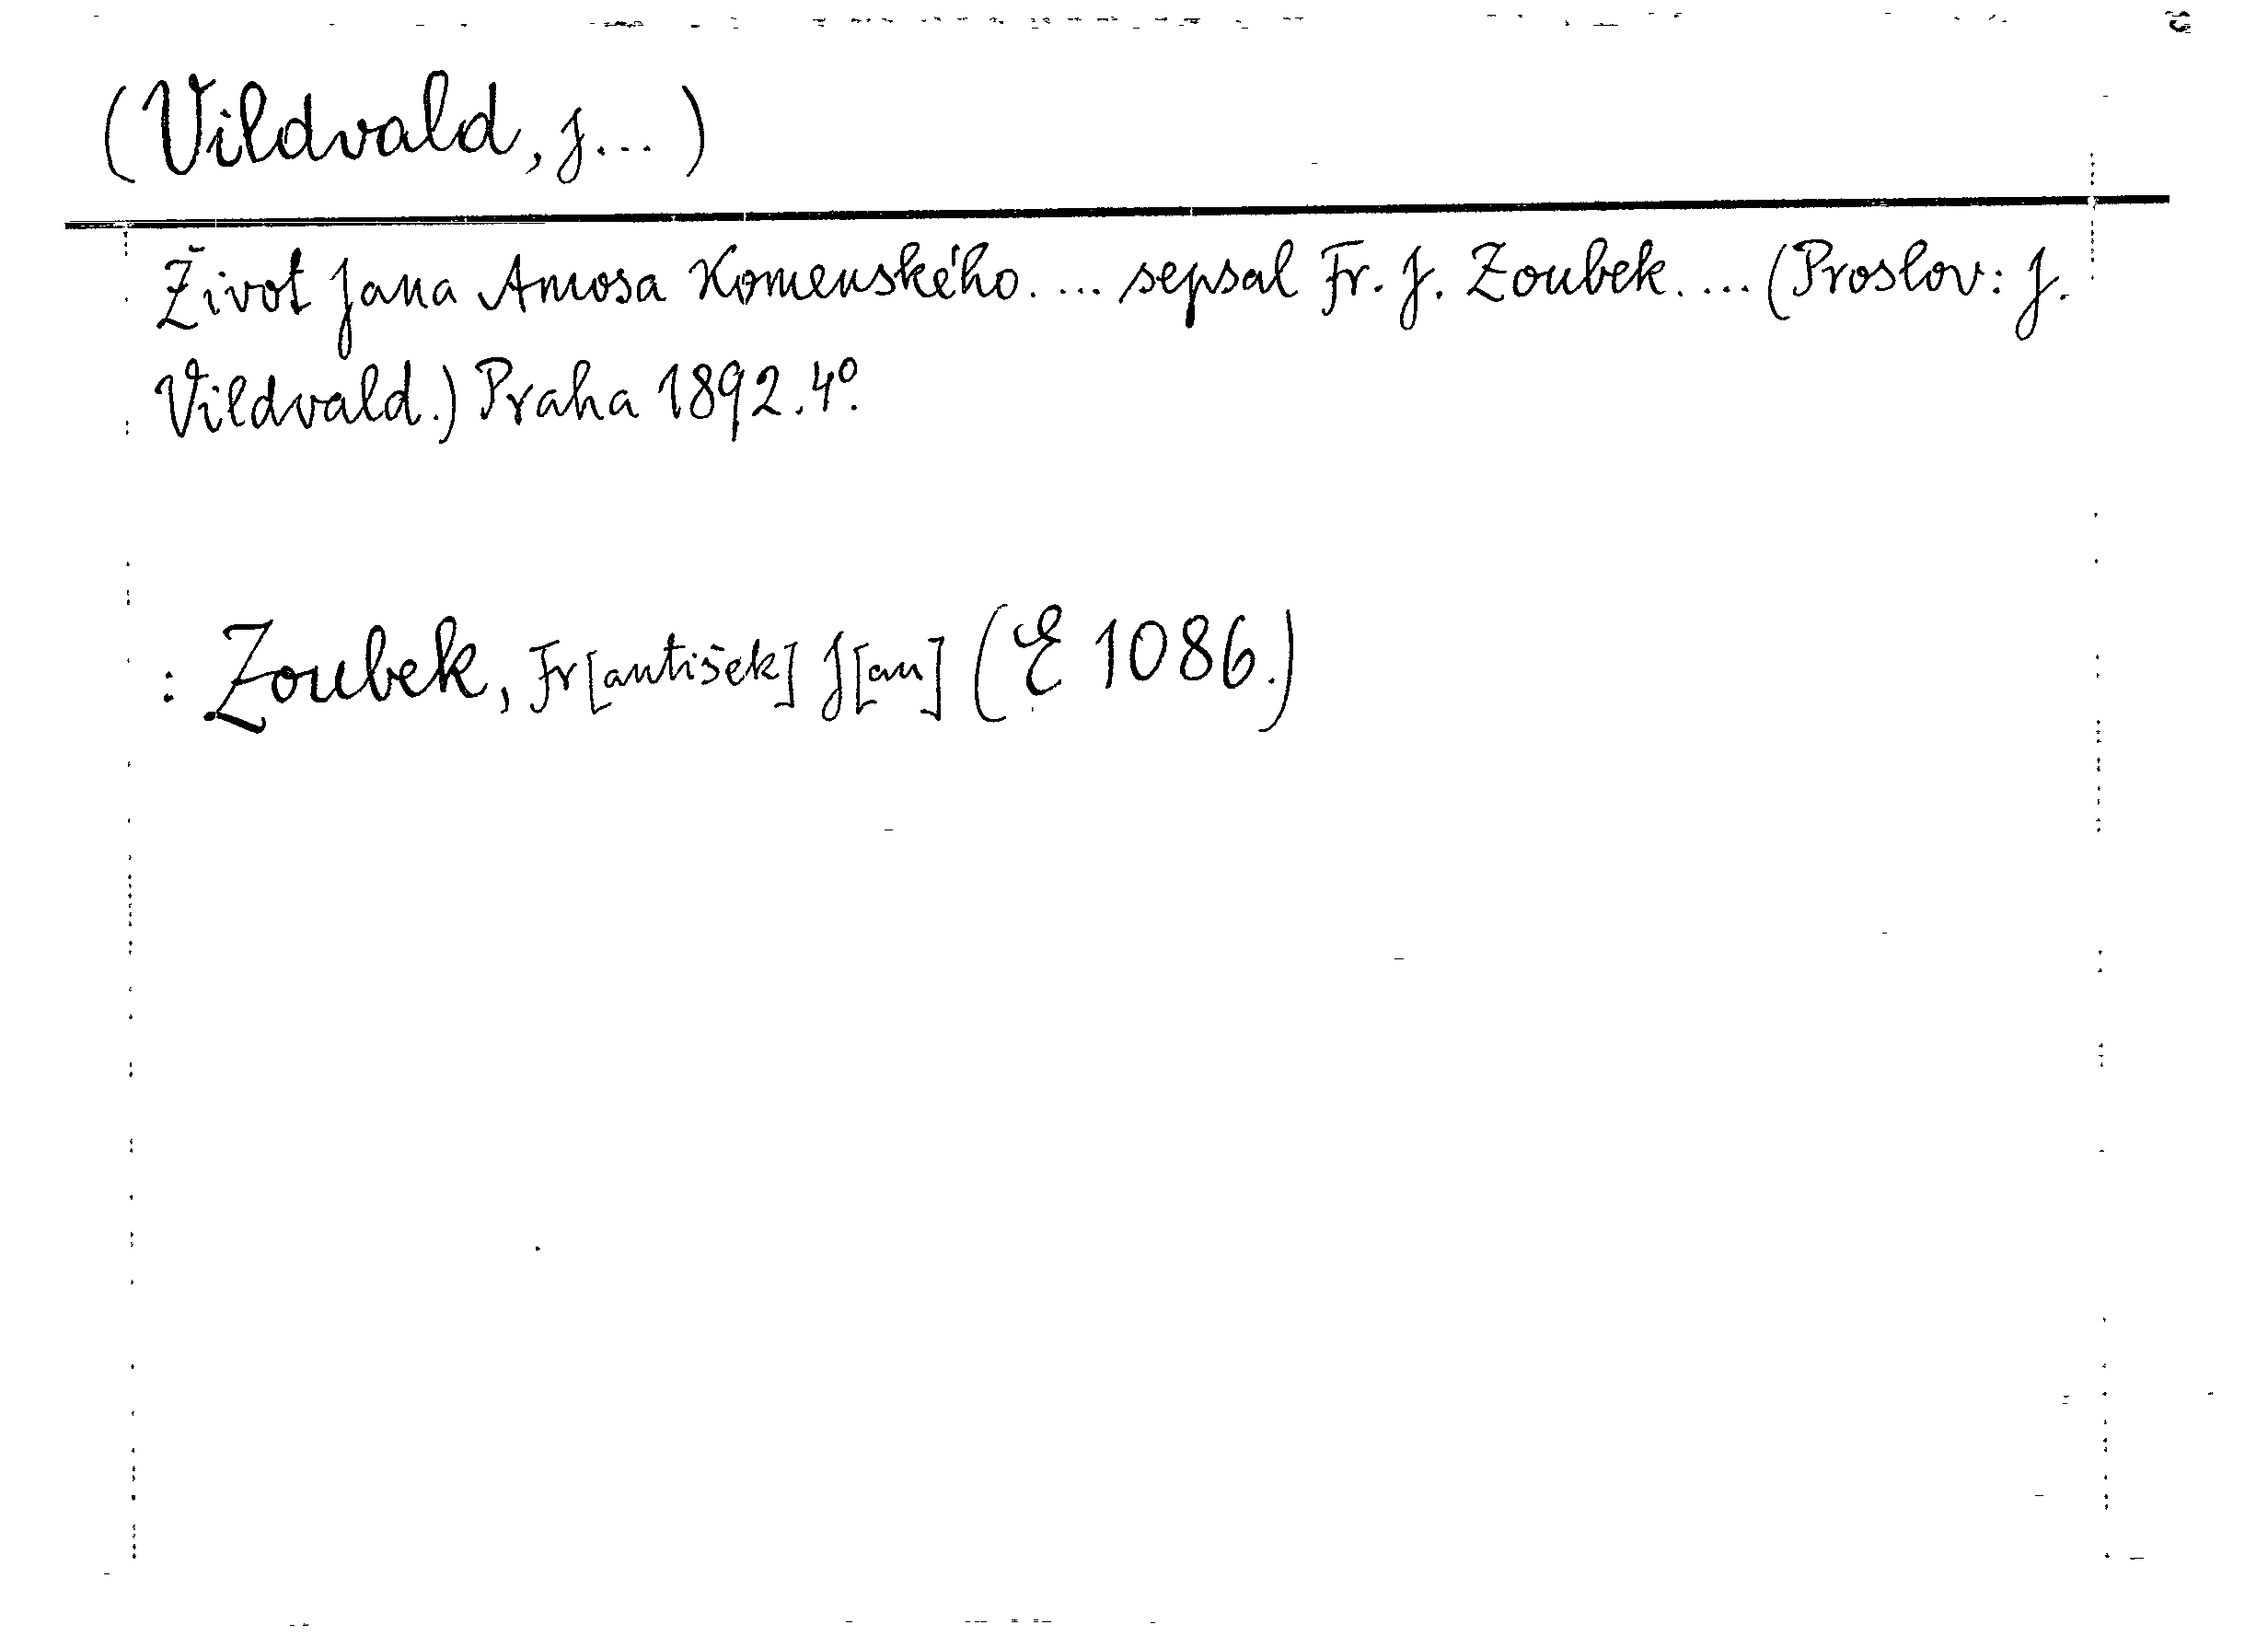 (Vildvald, J...)
Život Jana Amosa Komenského. ... sepsal Fr. J. Zoubek. ... (Proslov: J.
Vildvald.) Praha 1892. 4º.
: Zoubek, Fr[antišek] J[an] (E 1086.)